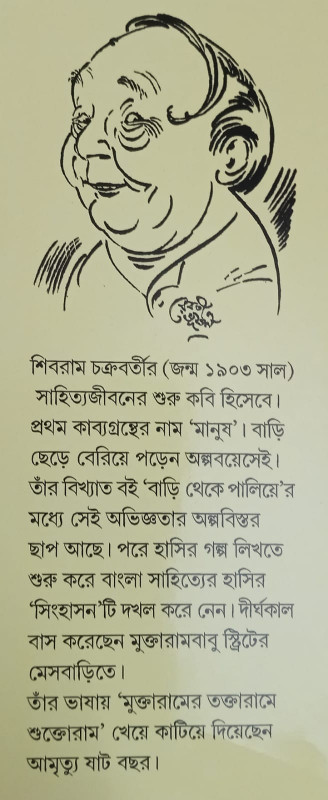 শিবরাম চক্রবর্তীর (জন্ম ১৯০৩ সাল)
সাহিত্যজীবনের শুরু কবি হিসেবে।
প্রথম কাব্যগ্রন্থের নাম ‘মানুষ’। বাড়ি
ছেড়ে বেরিয়ে পড়েন অল্পবয়েসেই।
তাঁর বিখ্যাত বই ‘বাড়ি থেকে পালিয়ে’র
মধ্যে সেই অভিজ্ঞতার অল্পবিস্তর
ছাপ আছে। পরে হাসির গল্প লিখতে
শুরু করে বাংলা সাহিত্যের হাসির
‘সিংহাসন’টি দখল করে নেন। দীর্ঘকাল
বাস করেছেন মুক্তারামবাবু স্ট্রিটের
মেসবাড়িতে।
তাঁর ভাষায় ‘মুক্তারামের তক্তারামে
শুক্তোরাম’ খেয়ে কাটিয়ে দিয়েছেন
আমৃত্যু ষাট বছর।